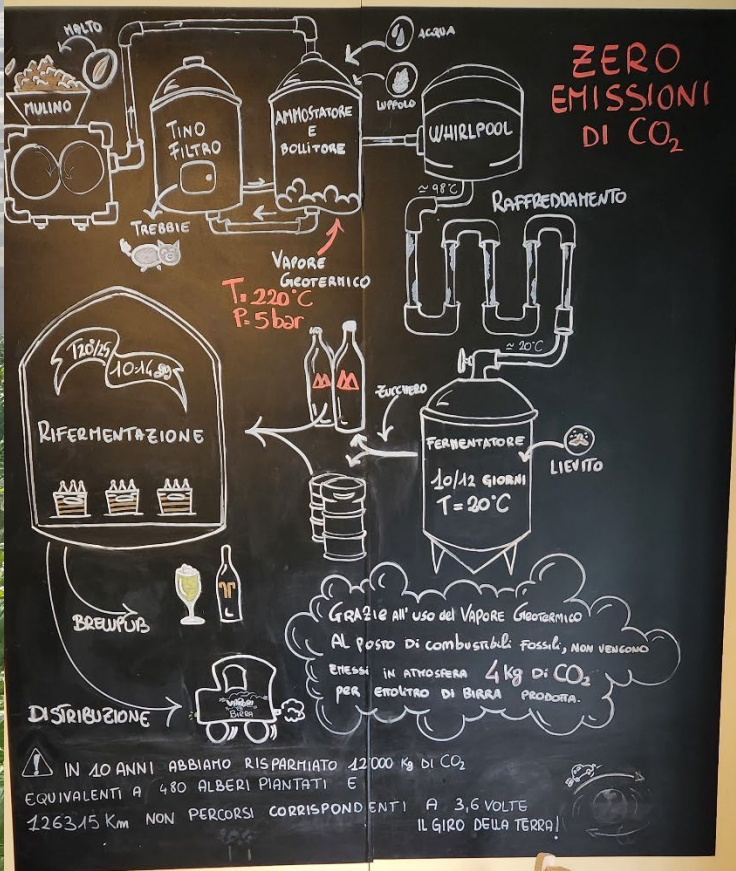 MALTO
ACQUA
LUPPOLO
MULINO
TINO
FILTRO
AMMOSTATORE
E
BOLLITORE
WHIRLPOOL
ZERO
EMISSIONI
DI CO₂
≃ 98°C
RAFFREDDAMENTO
TREBBIE
VAPORE
GEOTERMICO
T= 220°C
P= 5 bar
≃ 20°C
T20°/25
10-14 gg
RIFERMENTAZIONE
ZUCCHERO
FERMENTATORE
10/12 GIORNI
T= 20°C
LIEVITO
BREWPUB
DISTRIBUZIONE
BIRRA
GRAZIE all'uso del VAPORE GEOTERMICO
AL POSTO DI combustibili FOSSILI, NON VENGONO
EMESSI IN ATMOSFERA 4 Kg DI CO₂
per ETTOLITRO DI BIRRA PRODOTTA.
! IN 10 ANNI ABBIAMO RISPARMIATO 12000 Kg DI CO₂
EQUIVALENTI A 480 ALBERI PIANTATI E
126315 Km NON PERCORSI CORRISPONDENTI A 3,6 VOLTE
IL GIRO DELLA TERRA!